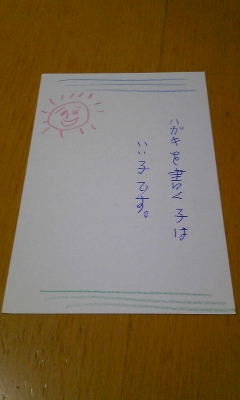 ハガキを書く子は
いい子です。